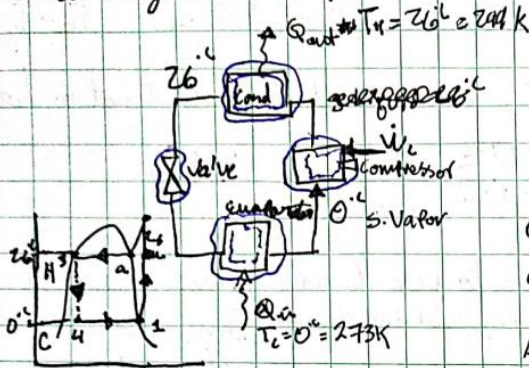 Qout TH = 26°C = 299 K
26°C
Cond
Ẇc
Compressor
Valve
evaporator
0°C
S. Vapor
Qin
TL = 0°C = 273K
26°C
H
3
a
2
0°C
C
4
1